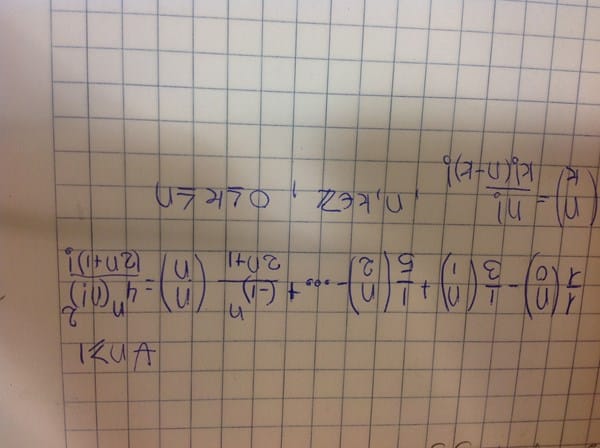 ∀n≥1
1/1 (n 0) - 1/3 (n 1) + 1/5 (n 2) - ... + (-1)^n/(2n+1) (n n) = 4^n (n!)^2/(2n+1)!
(n k) = n!/k!(n-k)! , n,k∈Z , 0≤k≤n